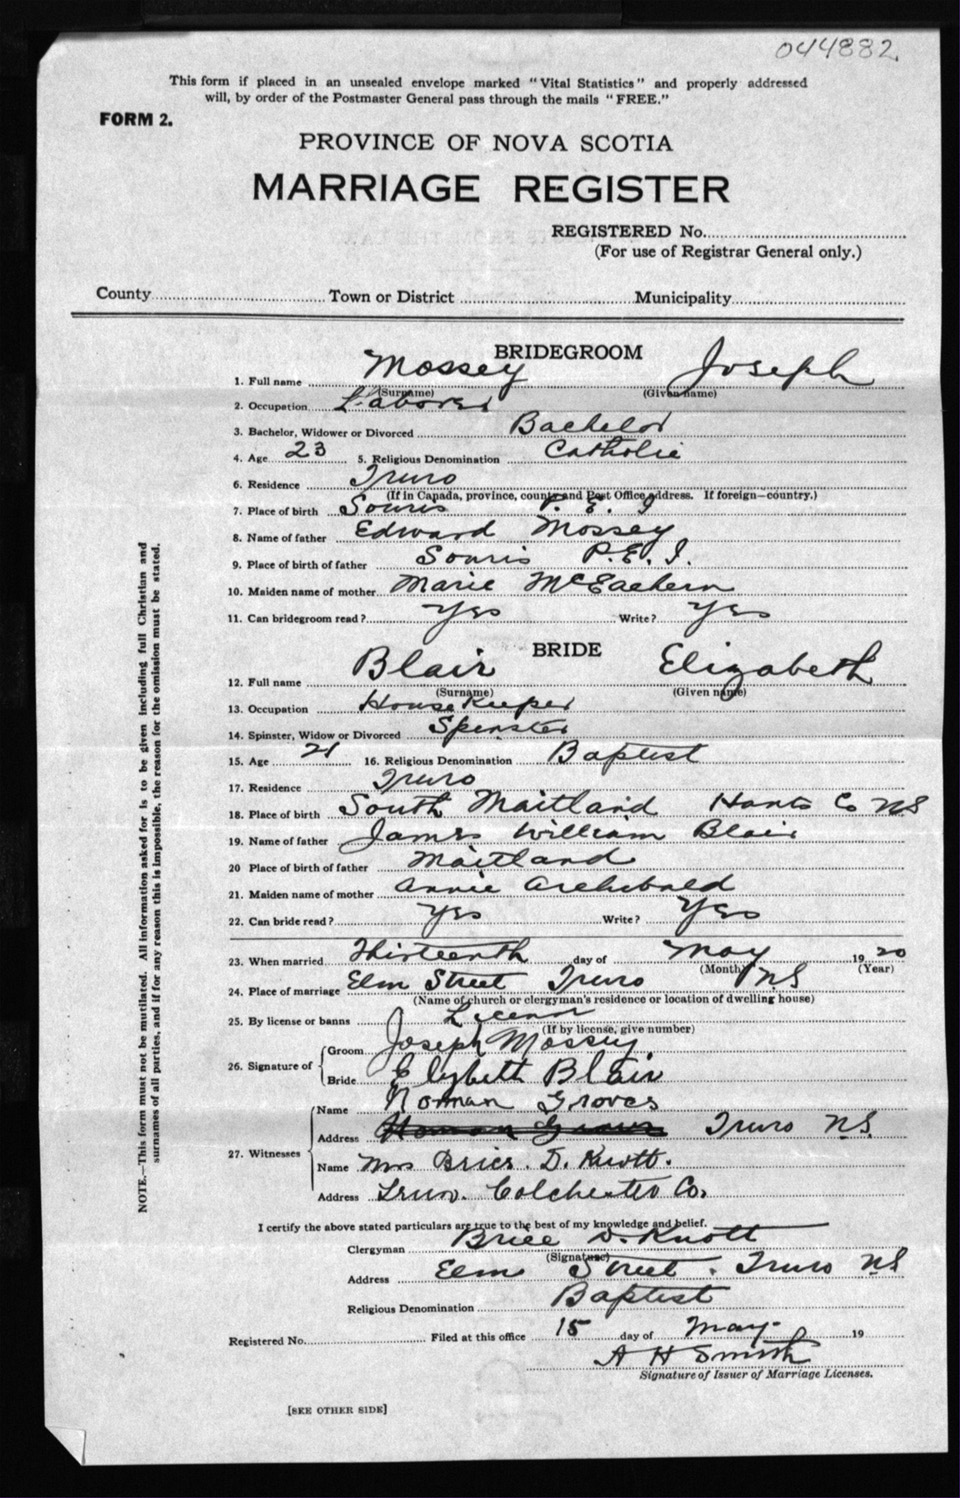 044882
This form if placed in an unsealed envelope marked "Vital Statistics" and properly addressed
will, by order of the Postmaster General pass through the mails "FREE."
FORM 2.
PROVINCE OF NOVA SCOTIA
MARRIAGE REGISTER
REGISTERED No.
(For use of Registrar General only.)
County Town or District Municipality
BRIDEGROOM
1. Full name Mossey Joseph
(Surname) (Given name)
2. Occupation Laborer
3. Bachelor, Widower or Divorced Bachelor
4. Age 23 5. Religious Denomination Catholic
6. Residence Truro
(If in Canada, province, county and Post Office address. If foreign—country.)
7. Place of birth Souris P. E. I
8. Name of father Edward Mossey
9. Place of birth of father Souris P.E.I.
10. Maiden name of mother Marie McEachern
11. Can bridegroom read? Yes Write? Yes
BRIDE
12. Full name Blair Elizabeth
(Surname) (Given name)
13. Occupation House Keeper
14. Spinster, Widow or Divorced Spinster
15. Age 21 16. Religious Denomination Baptist
17. Residence Truro
18. Place of birth South Maitland Hants Co NS
19. Name of father James William Blair
20 Place of birth of father Maitland
21. Maiden name of mother Annie Archibald
22. Can bride read? Yes Write? Yes
23. When married Thirteenth day of May 19 20
(Month) (Year)
24. Place of marriage Elm Street Truro NS
(Name of church or clergyman's residence or location of dwelling house)
25. By license or banns License
(If by license, give number)
26. Signature of
Groom Joseph Mossey.
Bride Elizbeth Blair
27. Witnesses
Name Norman Groves
Address Truro N.S.
Name Mrs Brice. D. Knott.
Address Truro. Colchester Co.
I certify the above stated particulars are true to the best of my knowledge and belief.
Clergyman Brice D. Knott
(Signature)
Address Elm Street. Truro NS
Religious Denomination Baptist
Registered No. Filed at this office 15 day of May. 19
A H Smith
Signature of Issuer of Marriage Licenses.
[SEE OTHER SIDE]
NOTE.—This form must not be mutilated. All information asked for is to be given including full Christian and
surnames of all parties, and if for any reason this is impossible, the reason for the omission must be stated.